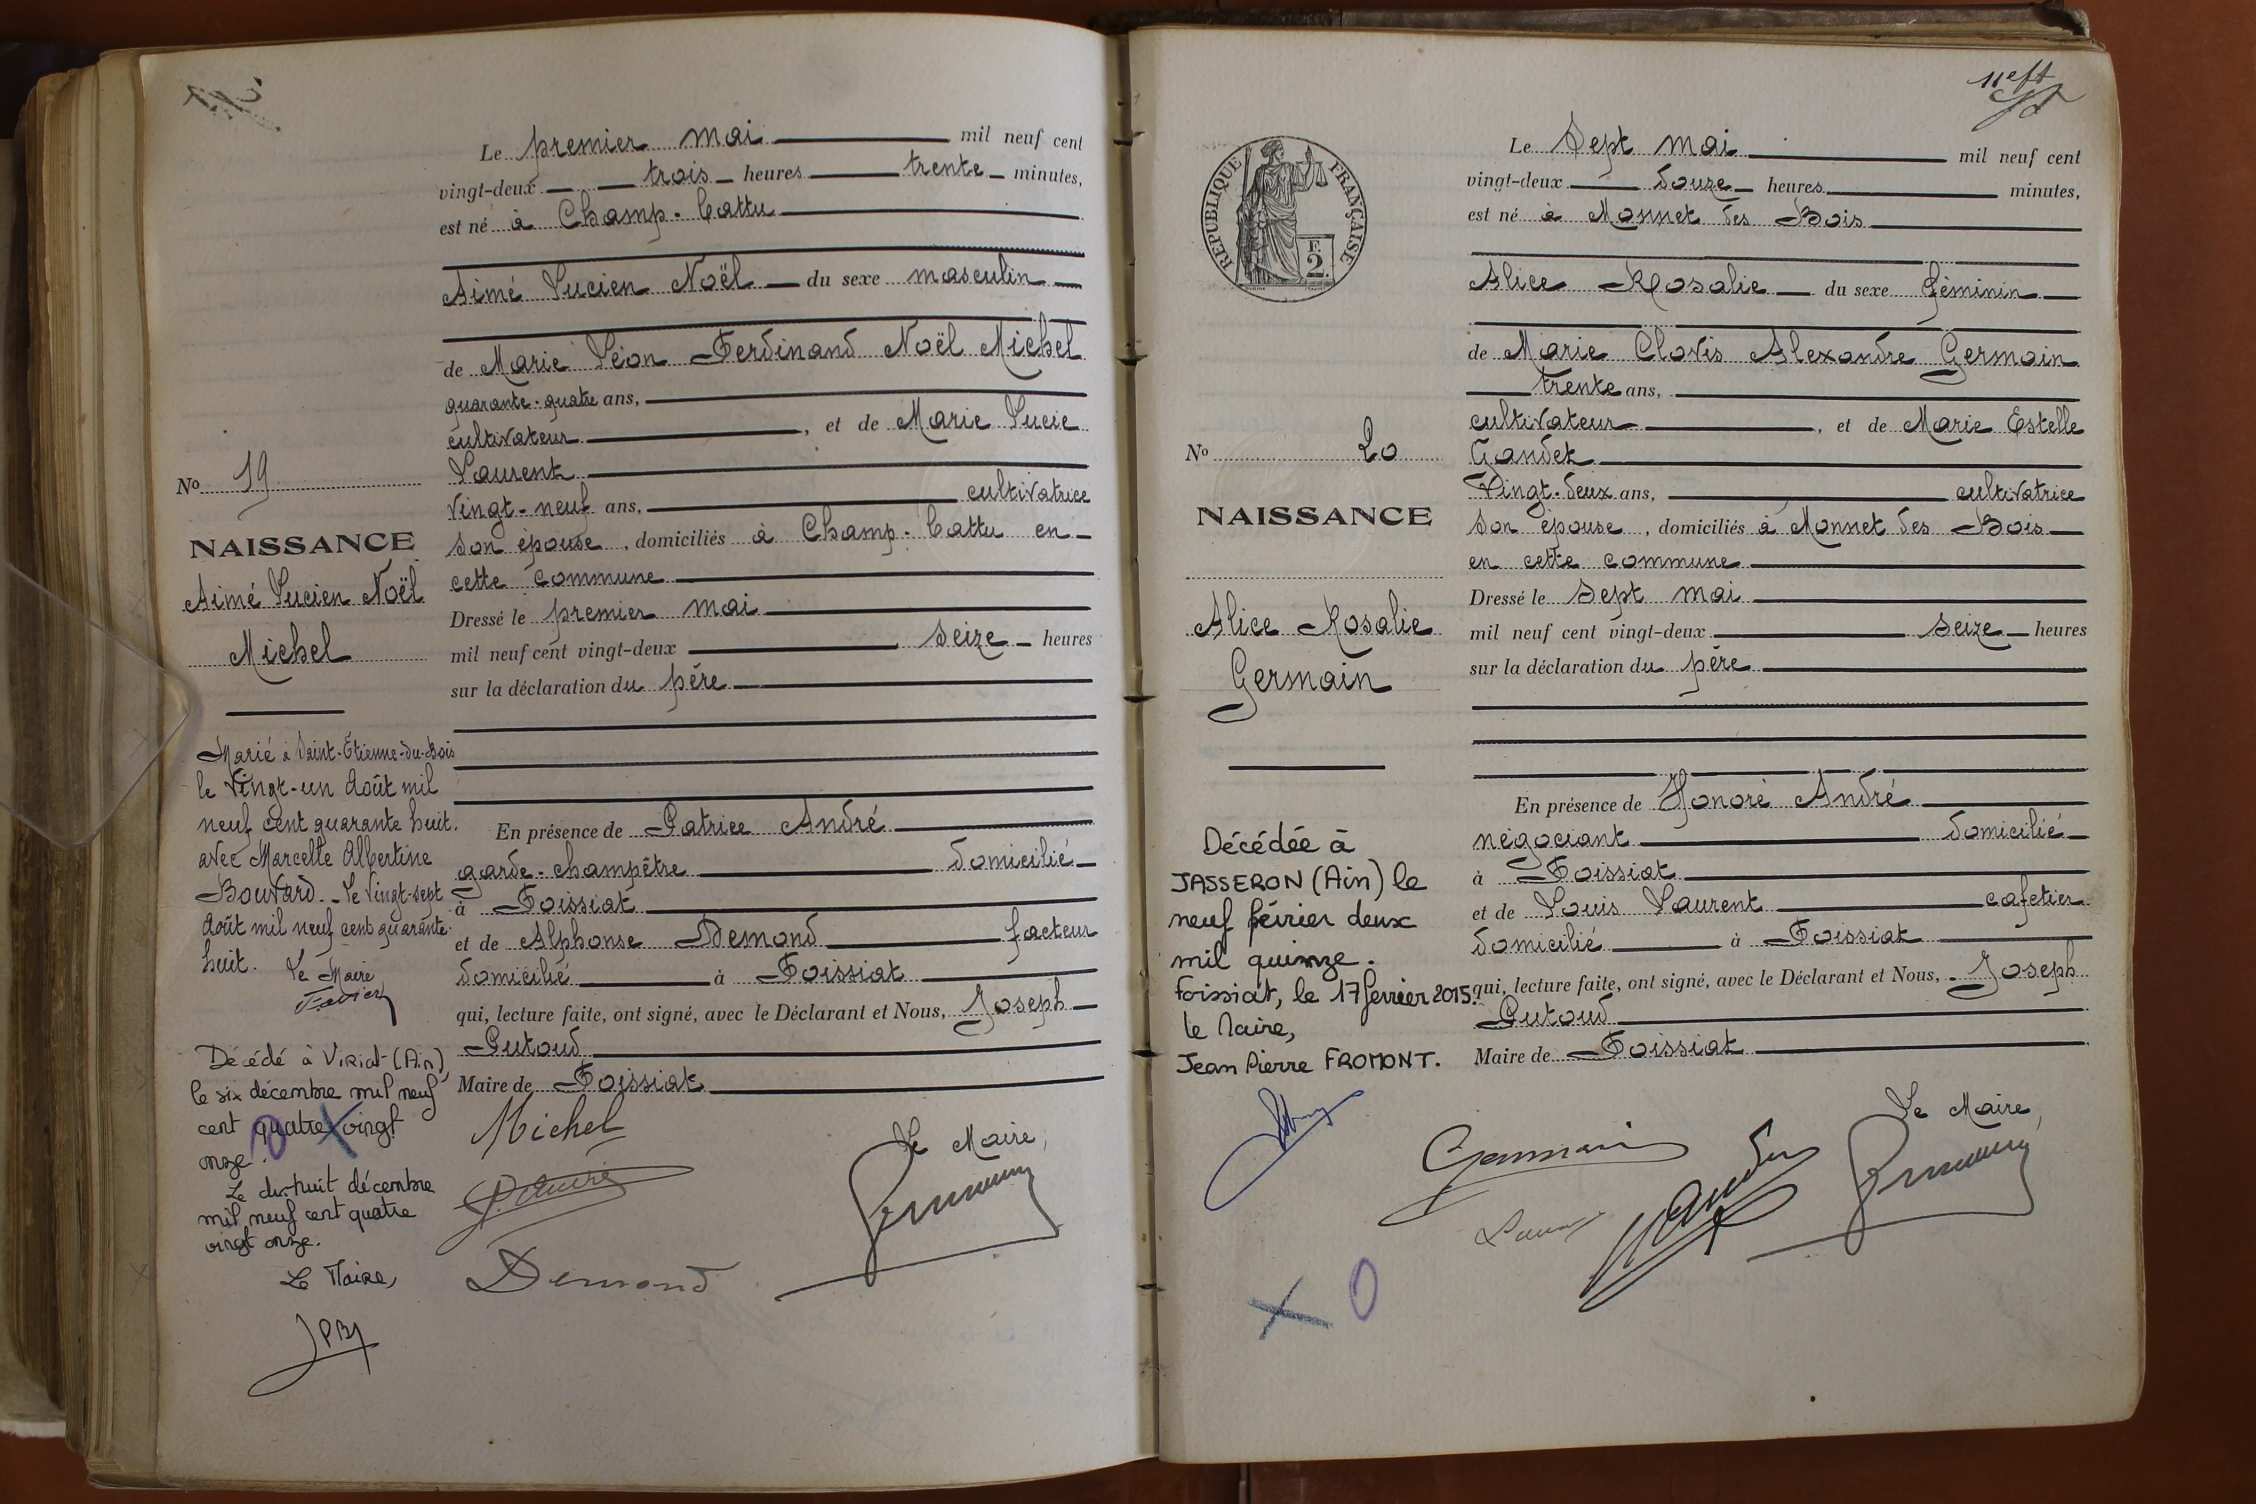 Le premier mai mil neuf cent
vingt-deux trois heures trente minutes,
est né à Champ-Battu
Aimé Lucien Noël du sexe masculin
de Marie Léon Ferdinand Noël Michel
quarante-quatre ans,
cultivateur, et de Marie Lucie
Laurent
vingt-neuf ans, cultivatrice
son épouse, domiciliés à Champ-Battu en
cette commune
Dressé le premier mai
mil neuf cent vingt-deux, seize heures
sur la déclaration du père
En présence de Patrice André
garde-champêtre domicilié
à Foissiat
et de Alphonse Demond facteur
domicilié à Foissiat
qui, lecture faite, ont signé, avec le Déclarant et Nous, Joseph
Putoud
Maire de Foissiat
Michel
Le Maire,
Demond
No 19
NAISSANCE
Aimé Lucien Noël
Michel
Marié à Saint-Etienne-du-Bois
le vingt-un Août mil
neuf cent quarante huit.
avec Marcelle Albertine
Bouvard. - Le vingt-sept
Août mil neuf cent quarante-
huit. Le Maire
Décédé à VIRIAT (Ain)
le six décembre mil neuf
cent quatre vingt
onze.
Le dix-huit décembre
mil neuf cent quatre
vingt onze.
Le Maire,
Le Sept mai mil neuf cent
vingt-deux douze heures minutes,
est né à Monnet des Bois
Alice Rosalie du sexe féminin
de Marie Clovis Alexandre Germain
trente ans,
cultivateur, et de Marie Estelle
Gandet
vingt-deux ans, cultivatrice
son épouse, domiciliés à Monnet des Bois
en cette commune
Dressé le sept mai
mil neuf cent vingt-deux seize heures
sur la déclaration du père
En présence de Honoré André
négociant domicilié
à Foissiat
et de Louis Laurent cafetier
domicilié à Foissiat
qui, lecture faite, ont signé, avec le Déclarant et Nous, Joseph
Putoud
Maire de Foissiat
Le Maire,
Germain
RÉPUBLIQUE FRANÇAISE
F.
2.
No 20
NAISSANCE
Alice Rosalie
Germain
Décédée à
JASSERON (Ain) le
neuf février deux
mil quinze.
Foissiat, le 17 février 2015.
Le Maire,
Jean Pierre FROMONT.